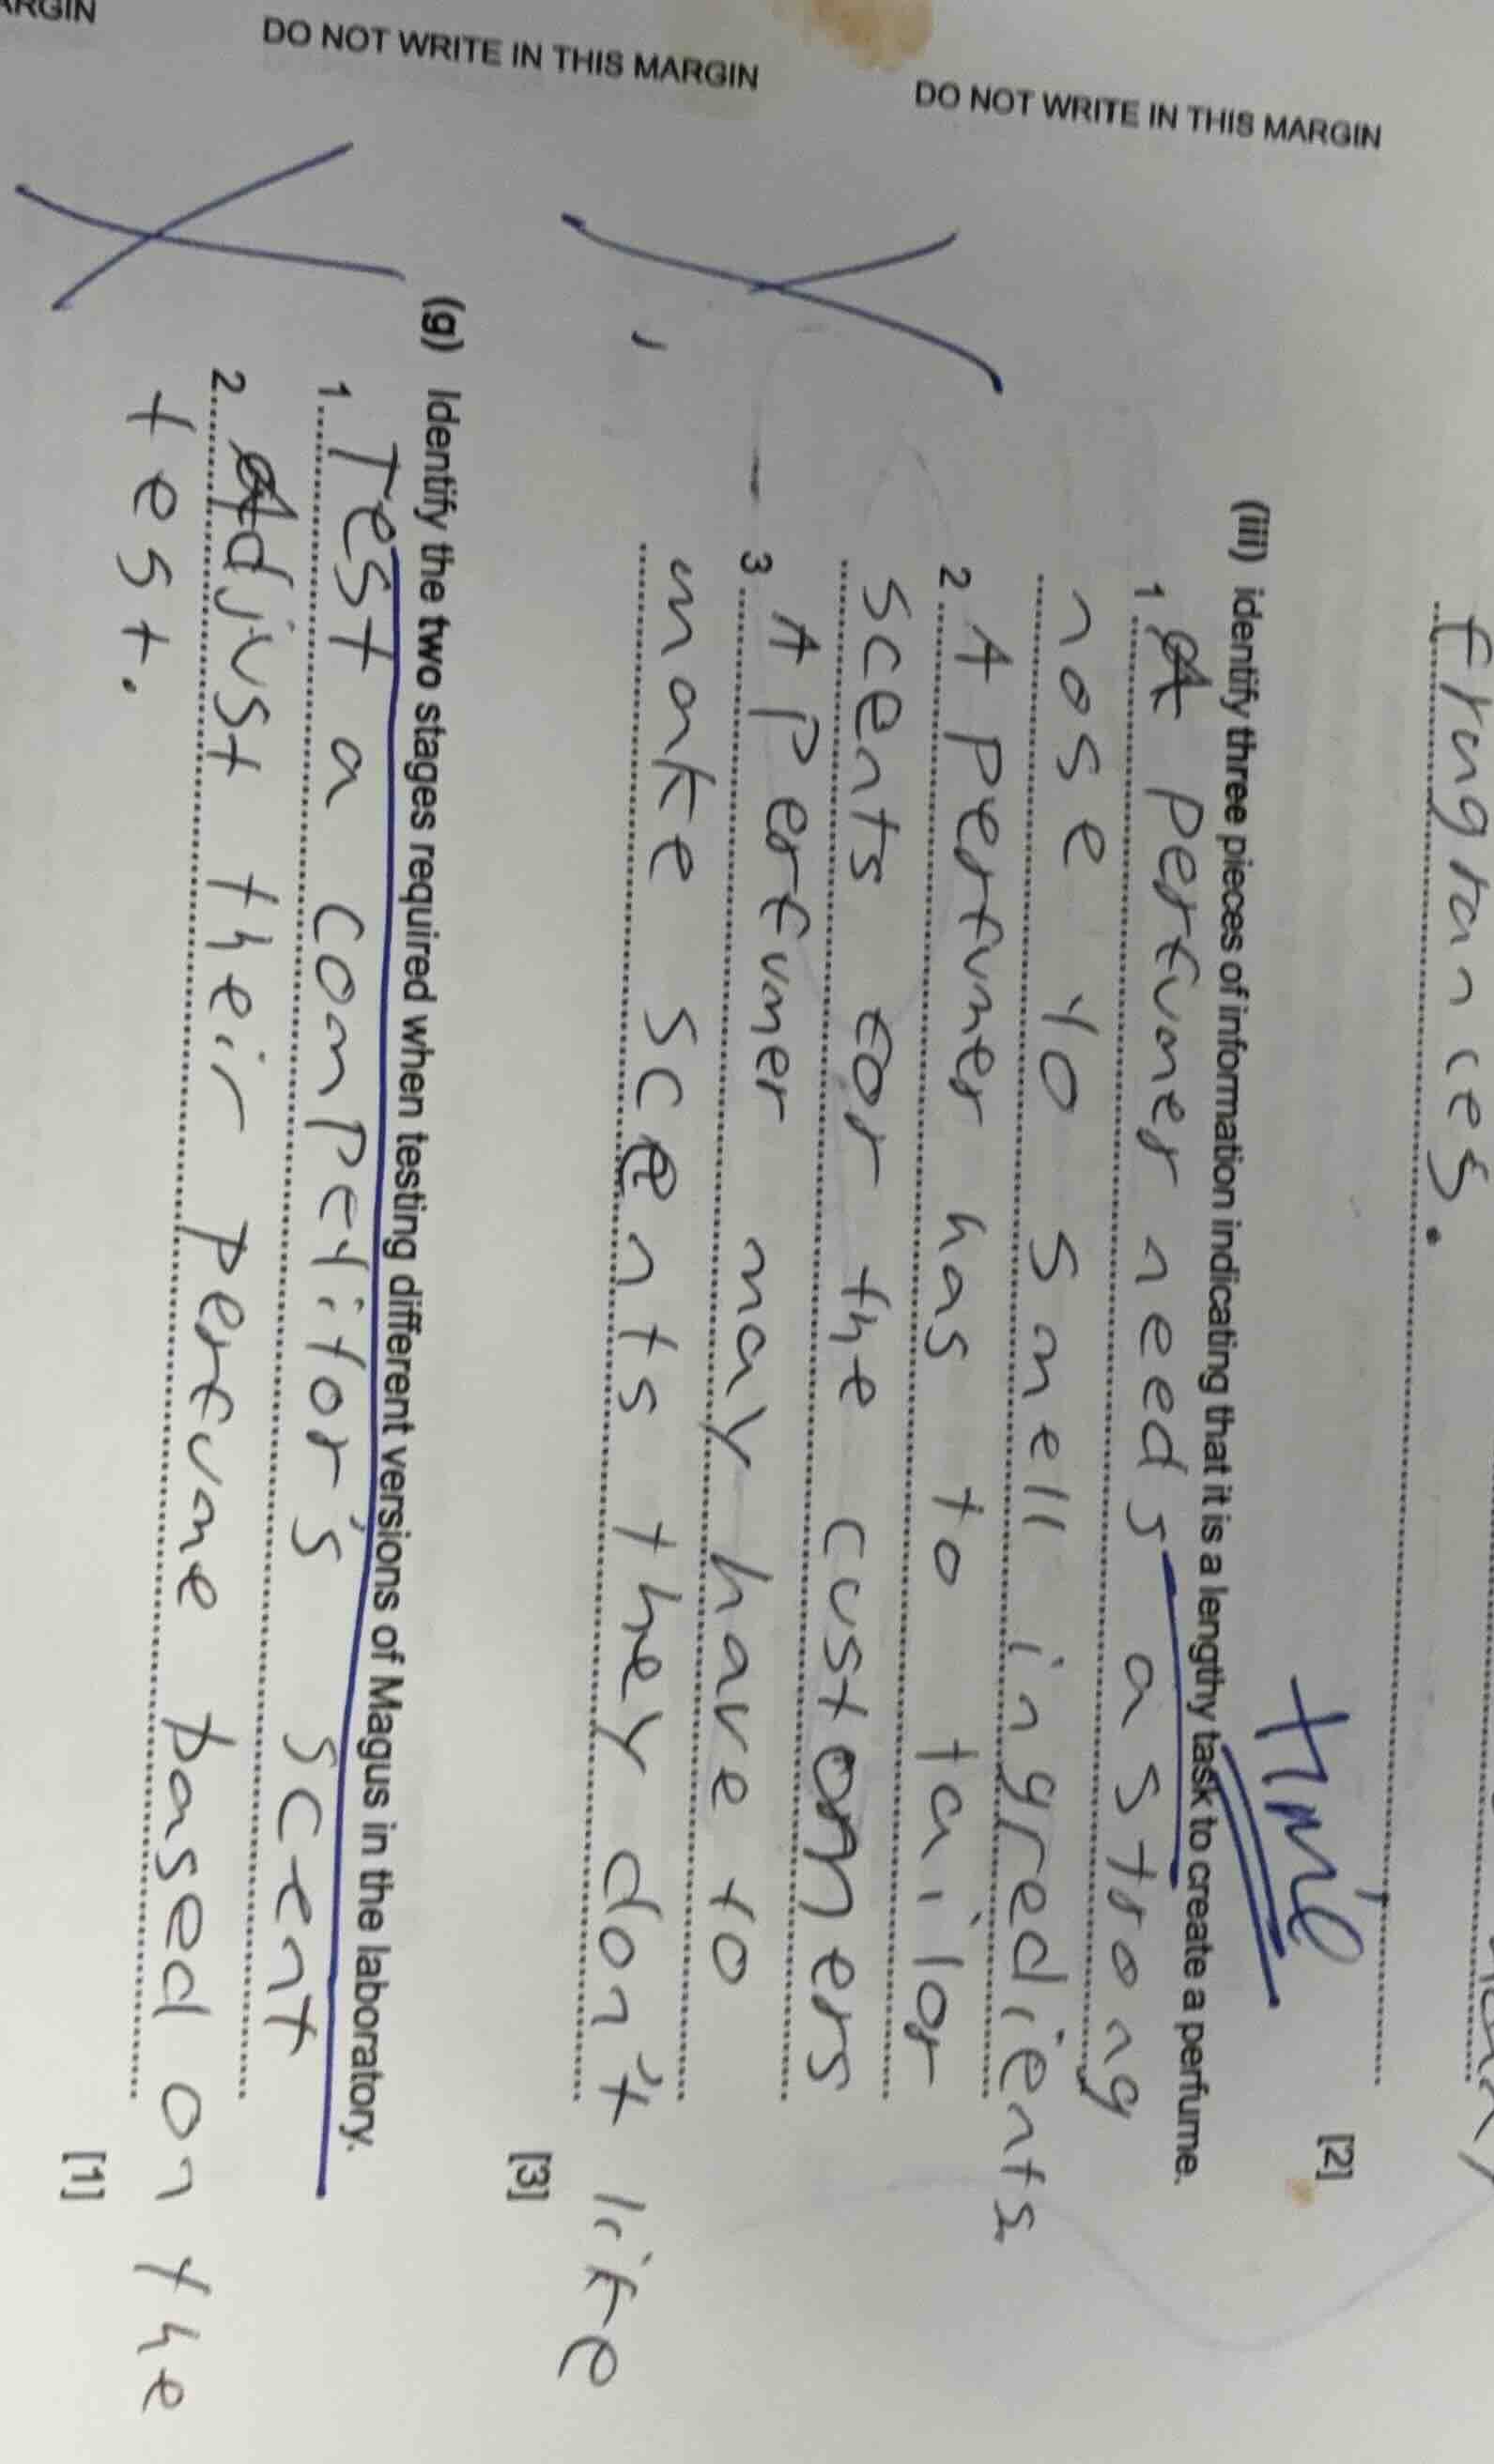 fragrances.
[2]
time
(iii) identify three pieces of information indicating that it is a lengthy task to create a perfume.
1 A perfumer needs a strong
nose to smell ingredients
2 A perfumer has to tailor
scents for the customers
3 A perfumer may have to
make scents they don't like
[3]
(g) Identify the two stages required when testing different versions of Magus in the laboratory.
1 Test a competitor's scent
2 Adjust their perfume based on the
test.
[1]
DO NOT WRITE IN THIS MARGIN
DO NOT WRITE IN THIS MARGIN